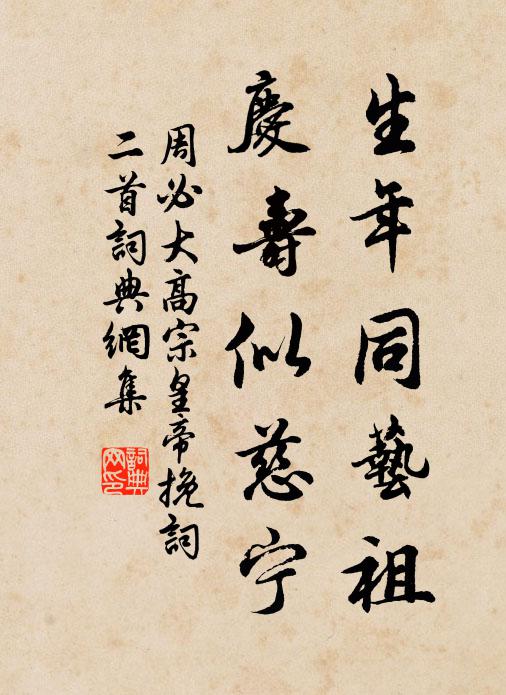 生年同藝祖
慶壽似慈宁
周必大高宗皇帝挽詞
二首詞典網集
詞典
网印